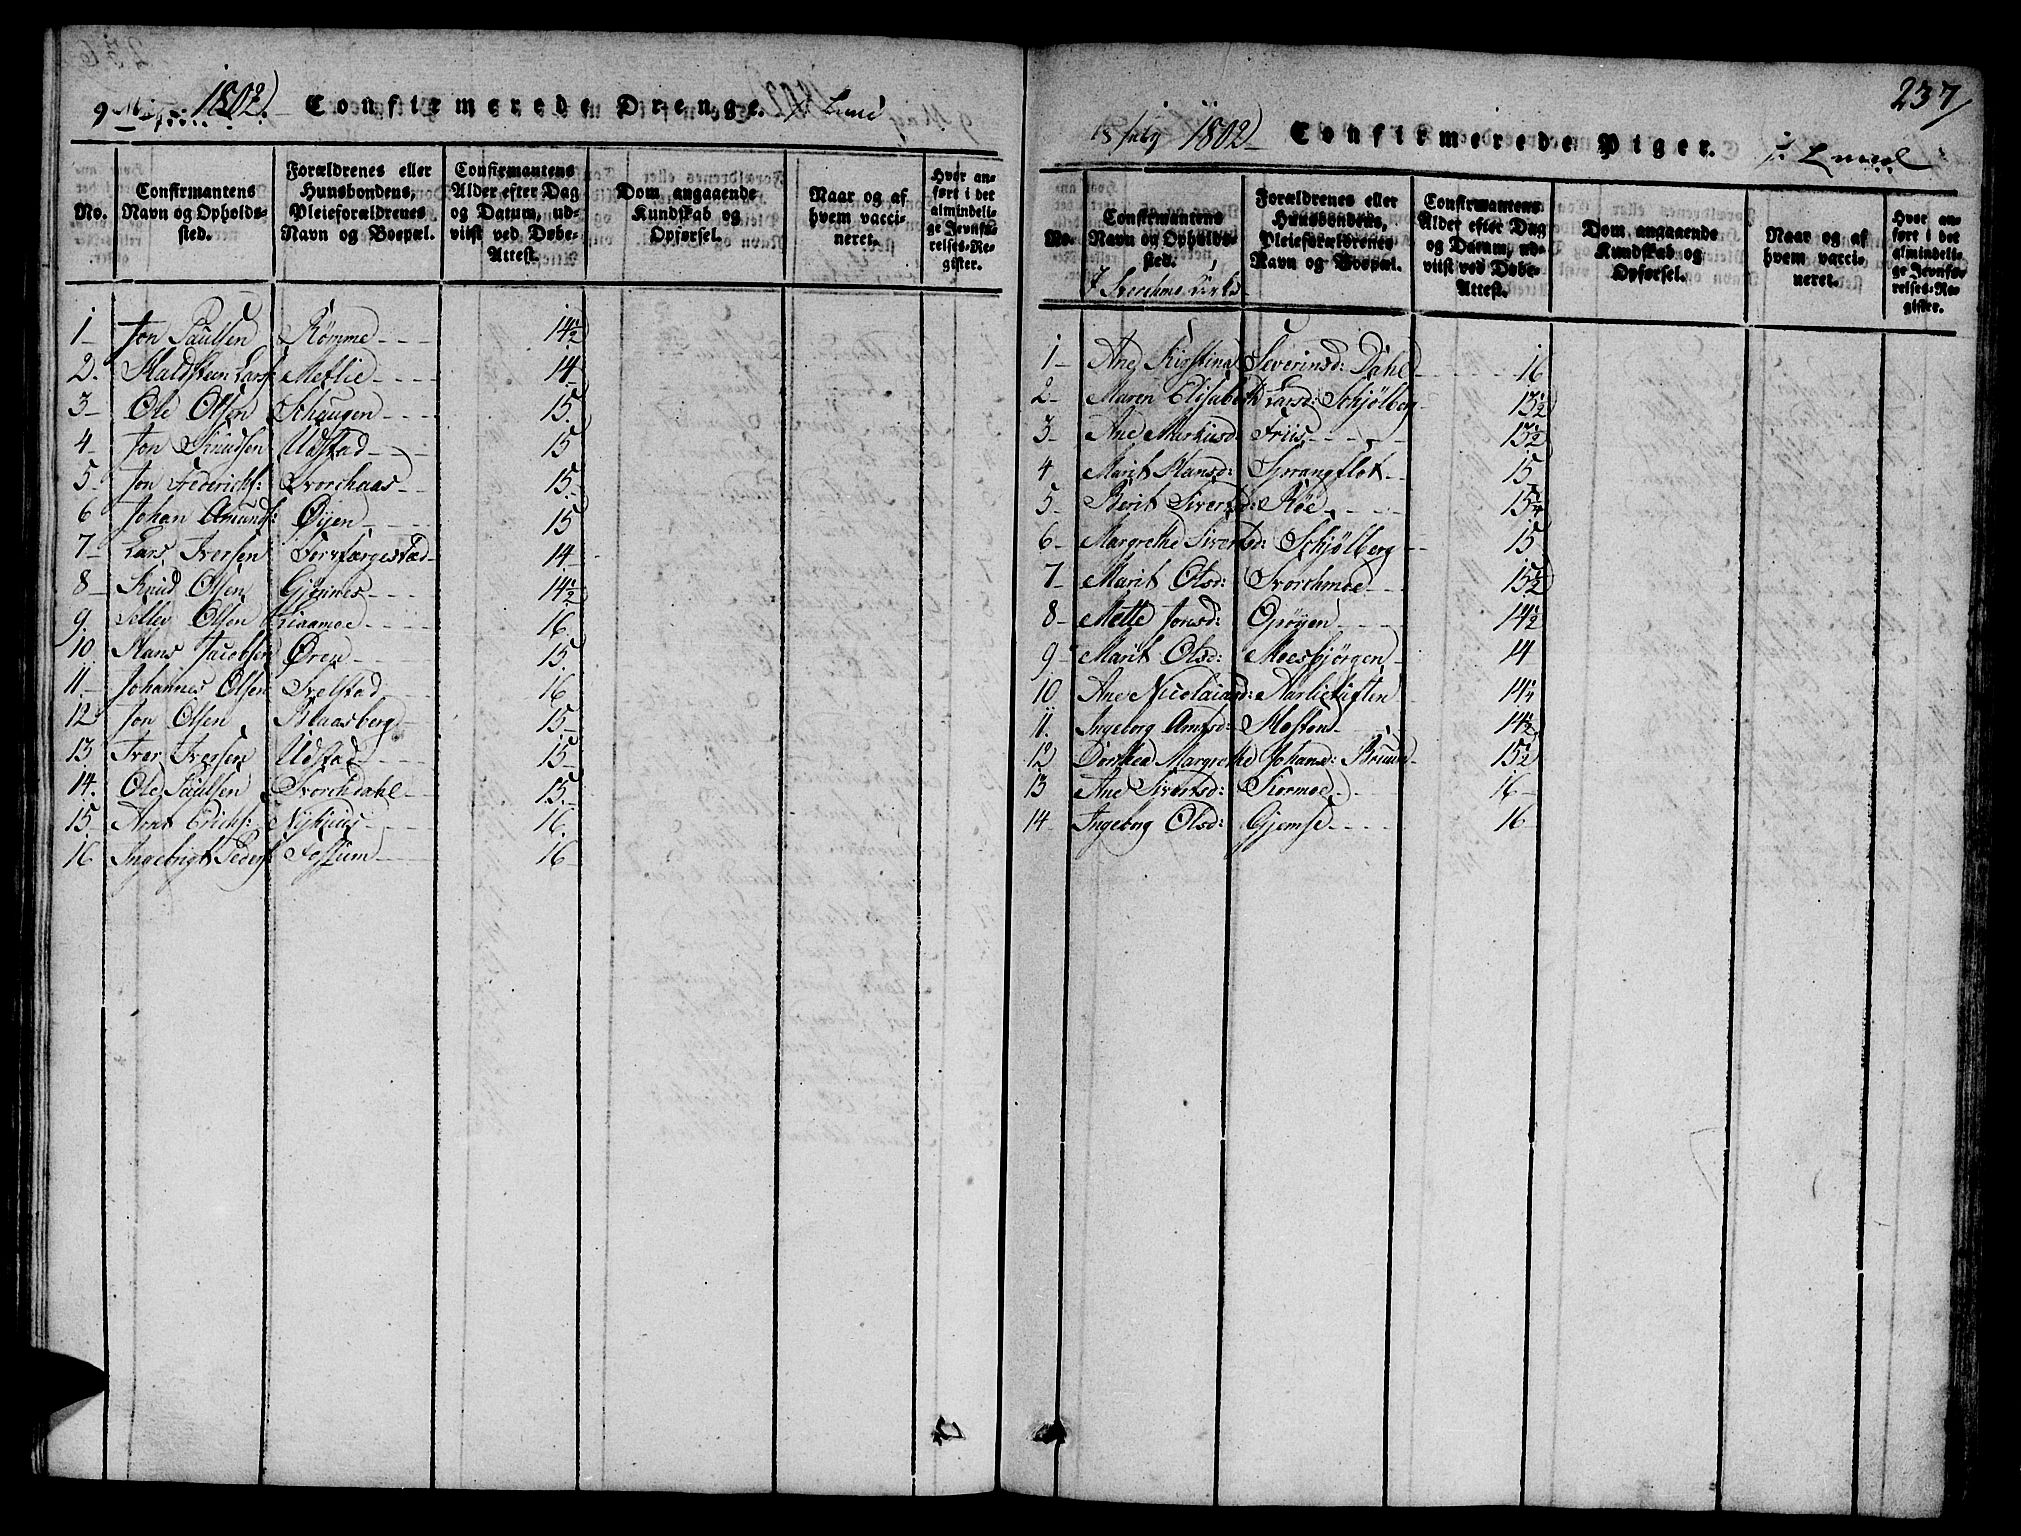 1802. Confirmerede Drenge. Lund
No.
Confirmantens Navn og Opholds-sted.
Forældrenes eller Huusbondens, Pleieforældrenes Navn og Boepæl.
Confirmantens Alder efter Dag og Datum, ud-viist ved Døbe-Attest.
Dom angaaende Kundskab og Opførsel.
Naar og af hvem vacci-neret.
Hvor an-ført i det almindeli-ge Jevnfø-relses-Re-gister.
1 Jon Paulsen Rømme 14 1/2
2. Haldsteen Lars: Meslie 14
3 Ole Olsen Schaugen 15
4 Jon Knudsen Udstad 15
5 Jon Frederichs: Svorchaas 15
6 Johan Amunds: Øÿen 15
7 Lars Iversen 14
8 Knud Olsen Gjønnes 14 1/2
9. Olsen 16
10 Hans Jacobsen Øren 15
11. Johannes Olsen 16
12 Jon Olsen Blaasberg 15
13 Iver Iversen Udstad 15
14. Ole Paulsen Svorchdahl 15
15 Arnt Erichs: Nÿhuus 16
16 Ingebrigt Peders: Fossum 16
237
1802 Confirmerede Piger. Lund
No.
Confirmantens Navn og Opholds-sted.
Forældrenes eller Huusbondens, Pleieforældrenes Navn og Boepæl.
Confirmantens Alder efter Dag og Datum, ud-viist ved Døbe-Attest.
Dom angaaende Kundskab og Opførsel.
Naar og af hvem vacci-neret.
Hvor an-ført i det almindeli-ge Jevnfø-relses-Re-gister.
I Svorchmo Kirke
1 Ane Kirstina Severinsd: Dahl 16
2 Maren Elisabeth Larsd: Schjølberg 15 1/2
3 Ane Markusd: Friis 15 1/2
4 Marit Hansd: Sprangflot 15
5 Berit Sivertsd: Røe 15 1/4
6 Margrethe Sivertsd: Schjølberg 15
7 Marit Olsd: Svorchmoe 15 1/2
8 Mette Jonsd: Opøyen 14 1/2
9 Marit Olsd: Moesbjørgen 14
10 Ane Nicolaiasd: Aarlivolten 14 1/4
11. Ingeborg Arntsd: Hoston 14 1/2
12 Dorthea Margrethe Johansd: Bruun 15 1/2
13 Ane Sivertsd: Skormoe 16
14 Ingeborg Olsd: Gjemse 16